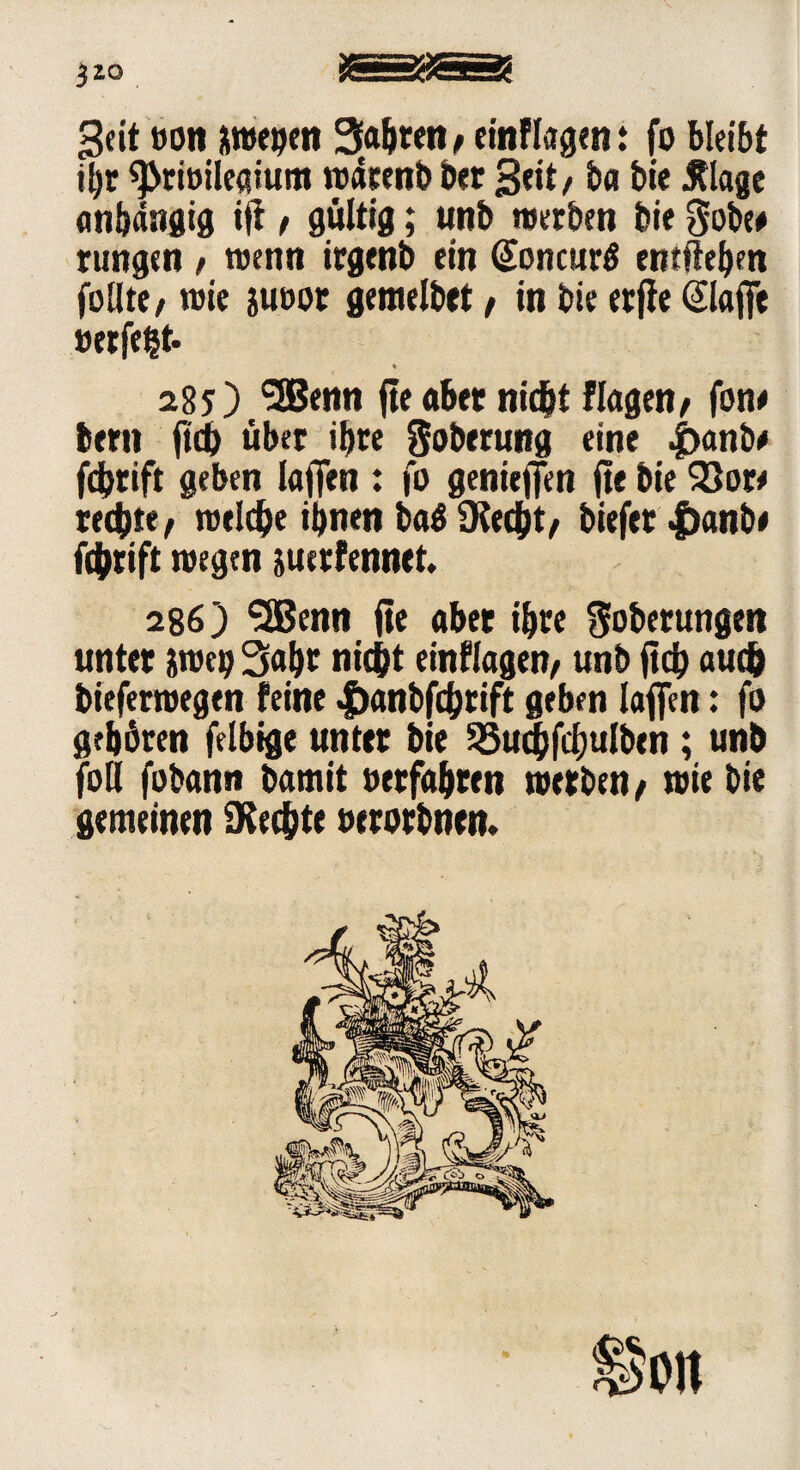 320
Zeit von zweyen Jahren, einklagen: so bleibt
ihr Privilegium wärend der Zeit, da die Klage
anhängig ist, gültig; und werden die Fode-
rungen, wenn irgend ein Concurs entstehen
sollte, wie zuvor gemeldet, in die erste Classe
versetzt.
285) Wenn sie aber nicht klagen, son-
dern sich über ihre Foderung eine Hand-
schrift geben lassen: so geniessen sie die Vor-
rechte, welche ihnen das Recht, dieser Hand-
schrift wegen zuerkennet.
286) Wenn sie aber ihre Foderungen
unter zwey Jahr nicht einklagen, und sich auch
dieserwegen keine Handschrift geben lassen: so
gehören selbige unter die Buchschulden; und
soll sodann damit verfahren werden, wie die
gemeinen Rechte verordnen.
Von